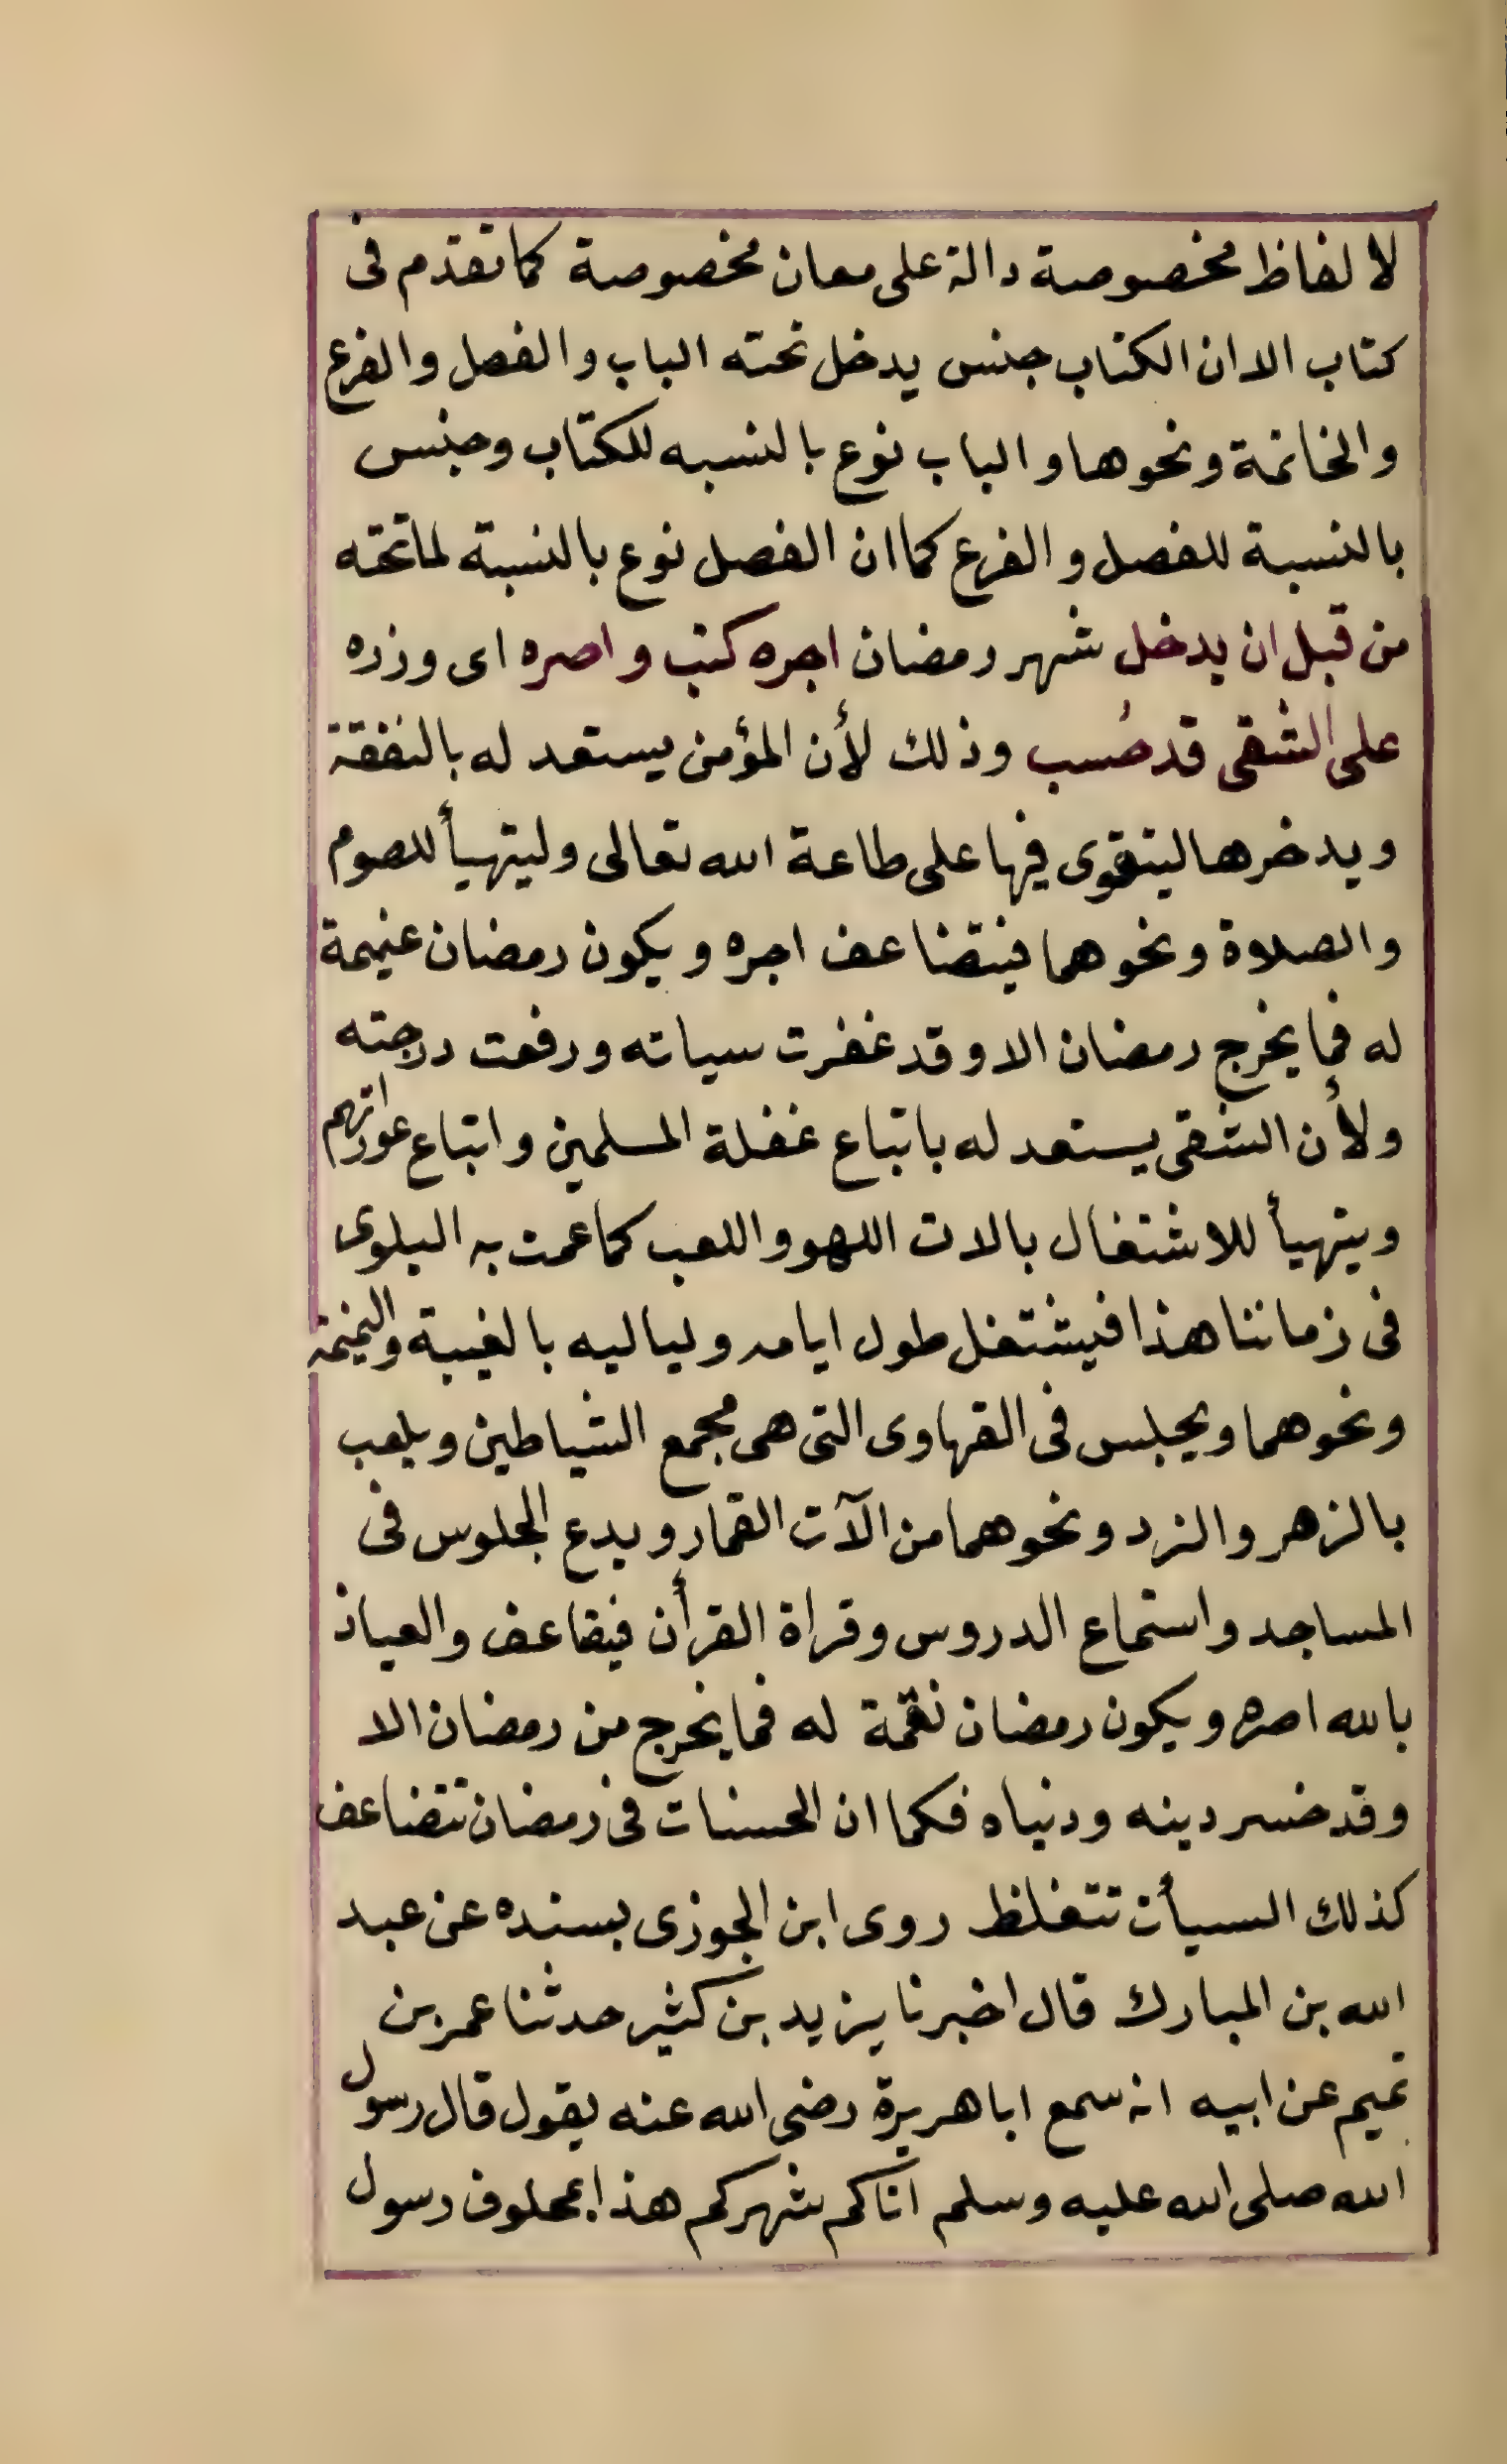 لالفاظ مخصوصة دالة على معان مخصوصة كما تقدم فى
كتاب الا ان الكتاب جنس يدخل تحته الباب والفصل والفرع
والخاتمة ونحوها والباب نوع بالنسبه للكتاب وجنس
بالنسبة للفصل والفرع كما ان الفصل نوع بالنسبة لما تحته
من قبل ان يدخل شهر رمضان اجره كتب واصره اى وزره
على الشقى قد حُسب وذلك لأن المؤمن يستعد له بالنفقة
ويدخرها ليتقوى فيها على طاعة الله تعالى وليتهيأ للصوم
والصلاة ونحوهما فيتضاعف اجره ويكون رمضان غنيمة
له فما يخرج رمضان الا وقد غفرت سياته ورفعت درجته
ولأن الشقى يستعد له باتباع غفلة المسلمين واتباع عوراتهم
ويتهيأ للاشتغال بالات اللهو واللعب كما عمت به البلوى
فى زماننا هذا فيشتغل طول ايامه ولياليه بالغيبة والنميمة
ونحوهما ويجلس فى القهاوى التى هى مجمع الشياطين ويلعب
بالزهر والنرد ونحوهما من الآت القمار ويدع الجلوس فى
المساجد واستماع الدروس وقراة القرأن فيضاعف والعياذ
بالله اصره ويكون رمضان نقمة له فما يخرج من رمضان الا
وقد خسر دينه ودنياه فكما ان الحسنات فى رمضان تتضاعف
كذلك السيأت تتغلظ روى ابن الجوزى بسنده عن عبد
الله بن المبارك قال اخبرنا يزيد بن كثير حدثنا عمر بن
تميم عن ابيه انه سمع ابا هريرة رضى الله عنه يقول قال رسول
الله صلى الله عليه وسلم اتاكم شهركم هذا بمحلوف رسول